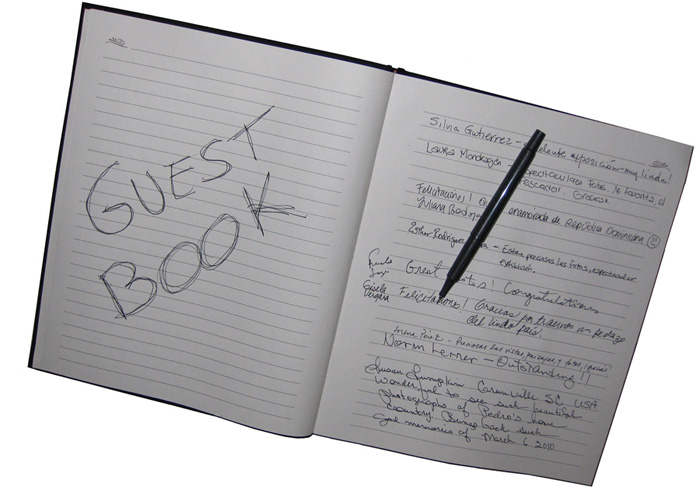 GUEST
BOOK
Silvia Gutierrez - exposición - muy linda!
Laura Mondragon Fotos. Mi favorita, el
Pescador. Gracias.
Felicitaciones! enamorada de República Dominicana
Esther Rodriguez - Están preciosas las fotos, espectacular
exhibición.
Great Congratulations
Gisela Vergara Felicitaciones! Gracias por traernos un pedazo
del lindo país.
Irene Paiz - Preciosas las vistas, paisajes y fotos,
Norm Lerner - Outstanding!!
Susan SC USA
Wonderful to see such beautiful
photographs of Pedro's home
country. Brings back such
good memories of March 6 2010